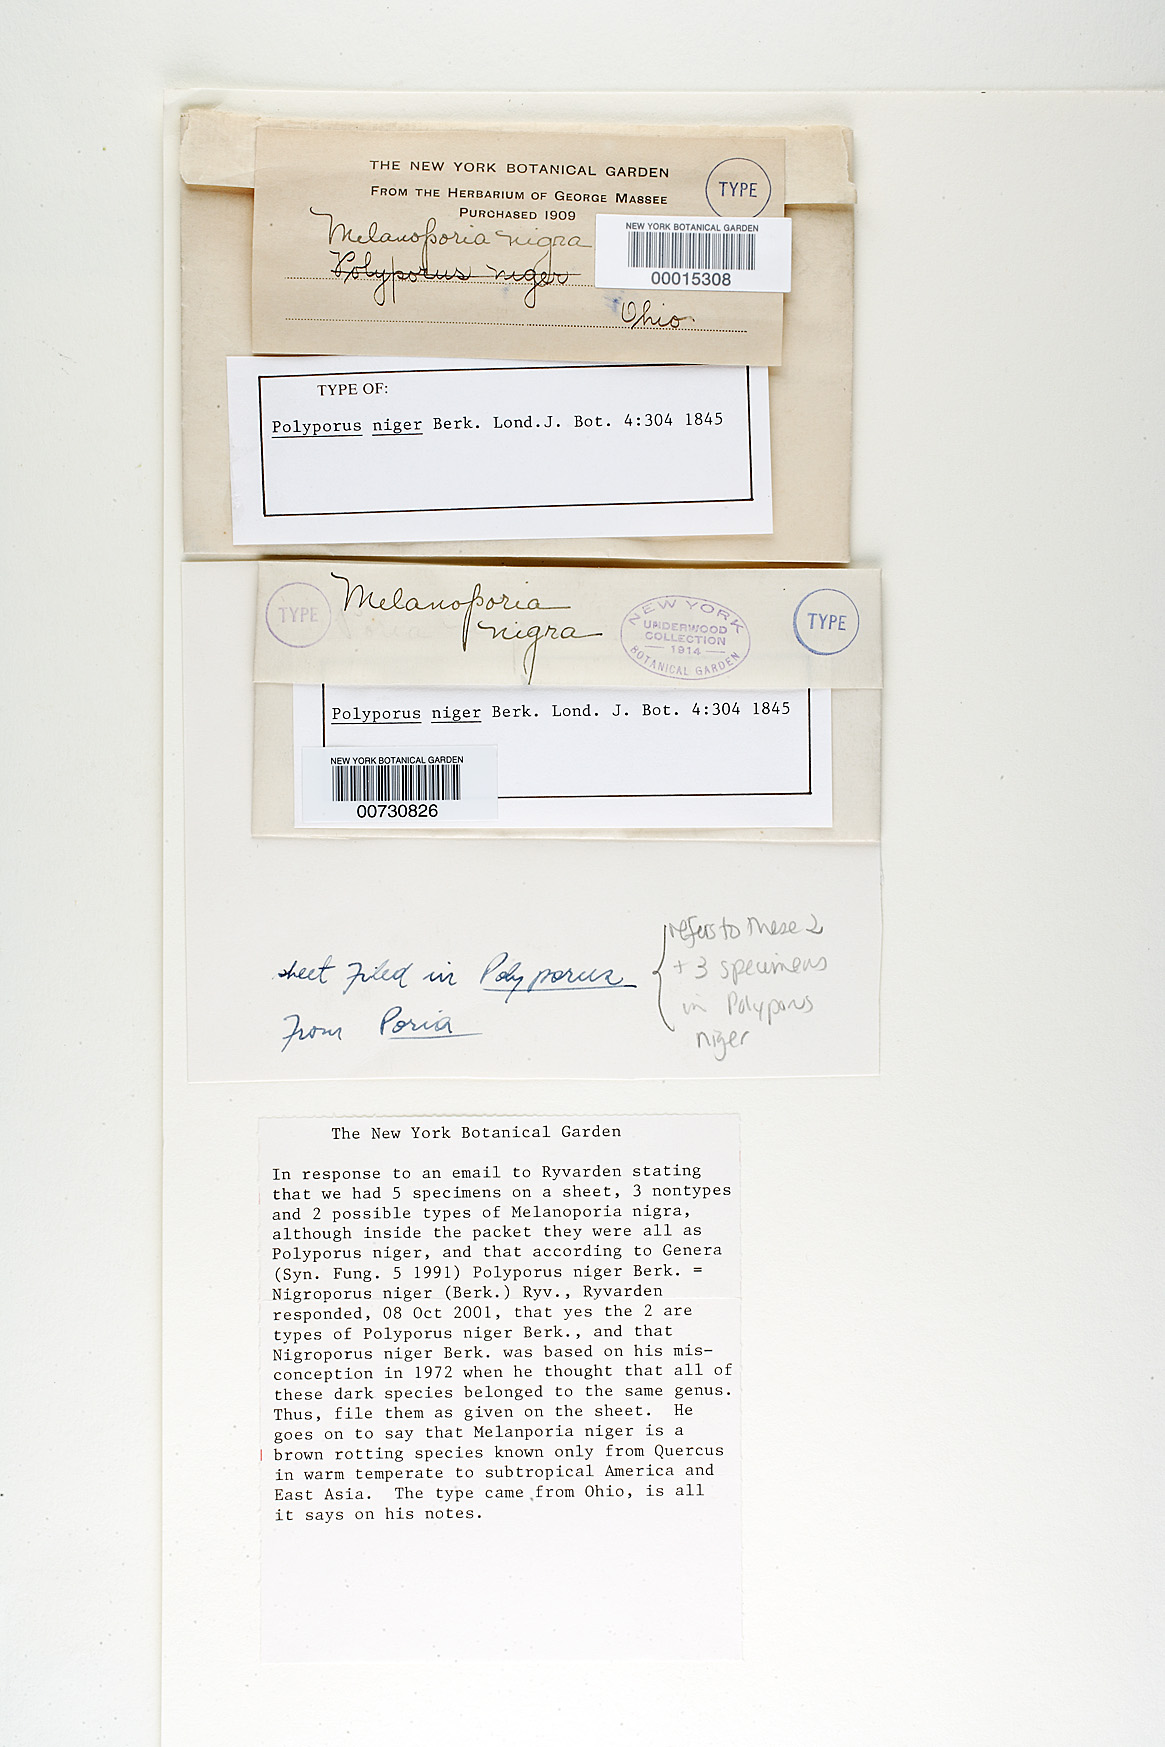 THE NEW YORK BOTANICAL GARDEN
FROM THE HERBARIUM OF GEORGE MASSEE
PURCHASED 1909
TYPE
Melanoporia nigra
Polyporus niger
Ohio.
NEW YORK BOTANICAL GARDEN
00015308
TYPE OF:
Polyporus niger Berk. Lond.J. Bot. 4:304 1845
TYPE
Melanoporia
nigra
NEW YORK
UNDERWOOD
COLLECTION
— 1914 —
BOTANICAL GARDEN
TYPE
Polyporus niger Berk. Lond. J. Bot. 4:304 1845
NEW YORK BOTANICAL GARDEN
00730826
sheet filed in Polyporus
From Poria
refers to these 2
+ 3 specimens
in Polyporus
niger
The New York Botanical Garden
In response to an email to Ryvarden stating
that we had 5 specimens on a sheet, 3 nontypes
and 2 possible types of Melanoporia nigra,
although inside the packet they were all as
Polyporus niger, and that according to Genera
(Syn. Fung. 5 1991) Polyporus niger Berk. =
Nigroporus niger (Berk.) Ryv., Ryvarden
responded, 08 Oct 2001, that yes the 2 are
types of Polyporus niger Berk., and that
Nigroporus niger Berk. was based on his mis-
conception in 1972 when he thought that all of
these dark species belonged to the same genus.
Thus, file them as given on the sheet. He
goes on to say that Melanporia niger is a
brown rotting species known only from Quercus
in warm temperate to subtropical America and
East Asia. The type came from Ohio, is all
it says on his notes.